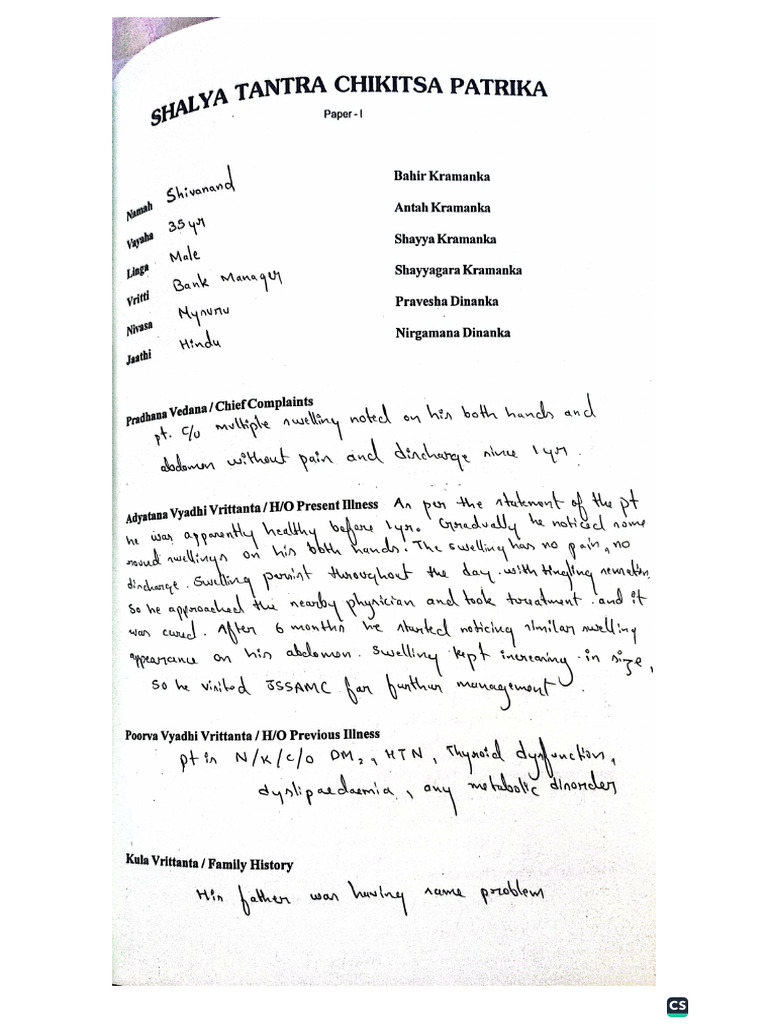 SHALYA TANTRA CHIKITSA PATRIKA
Paper - I
Namah Shivanand
Vayaha 35 yr
Linga Male
Vritti Bank Manager
Nivasa Mysuru
Jaathi Hindu
Bahir Kramanka
Antah Kramanka
Shayya Kramanka
Shayyagara Kramanka
Pravesha Dinanka
Nirgamana Dinanka
Pradhana Vedana / Chief Complaints
pt. c/o multiple swelling noted on his both hands and
abdomen without pain and discharge since 1 yr.
Adyatana Vyadhi Vrittanta / H/O Present Illness As per the statement of the pt
he was apparently healthy before 1yr. Gradually he noticed some
round swellings on his both hands. The swelling has no pain, no
discharge. Swelling persist throughout the day. with tingling sensation,
So he approached the nearby physician and took treatment. and it
was cured. After 6 months he started noticing similar swelling
appearance on his abdomen. Swelling kept increasing in size,
So he visited JSSAMC for further management.
Poorva Vyadhi Vrittanta / H/O Previous Illness
pt is N/K/C/O DM2, HTN, Thyroid dysfunction,
dyslipaedaemia, any metabolic disorder
Kula Vrittanta / Family History
His father was having same problem
CS